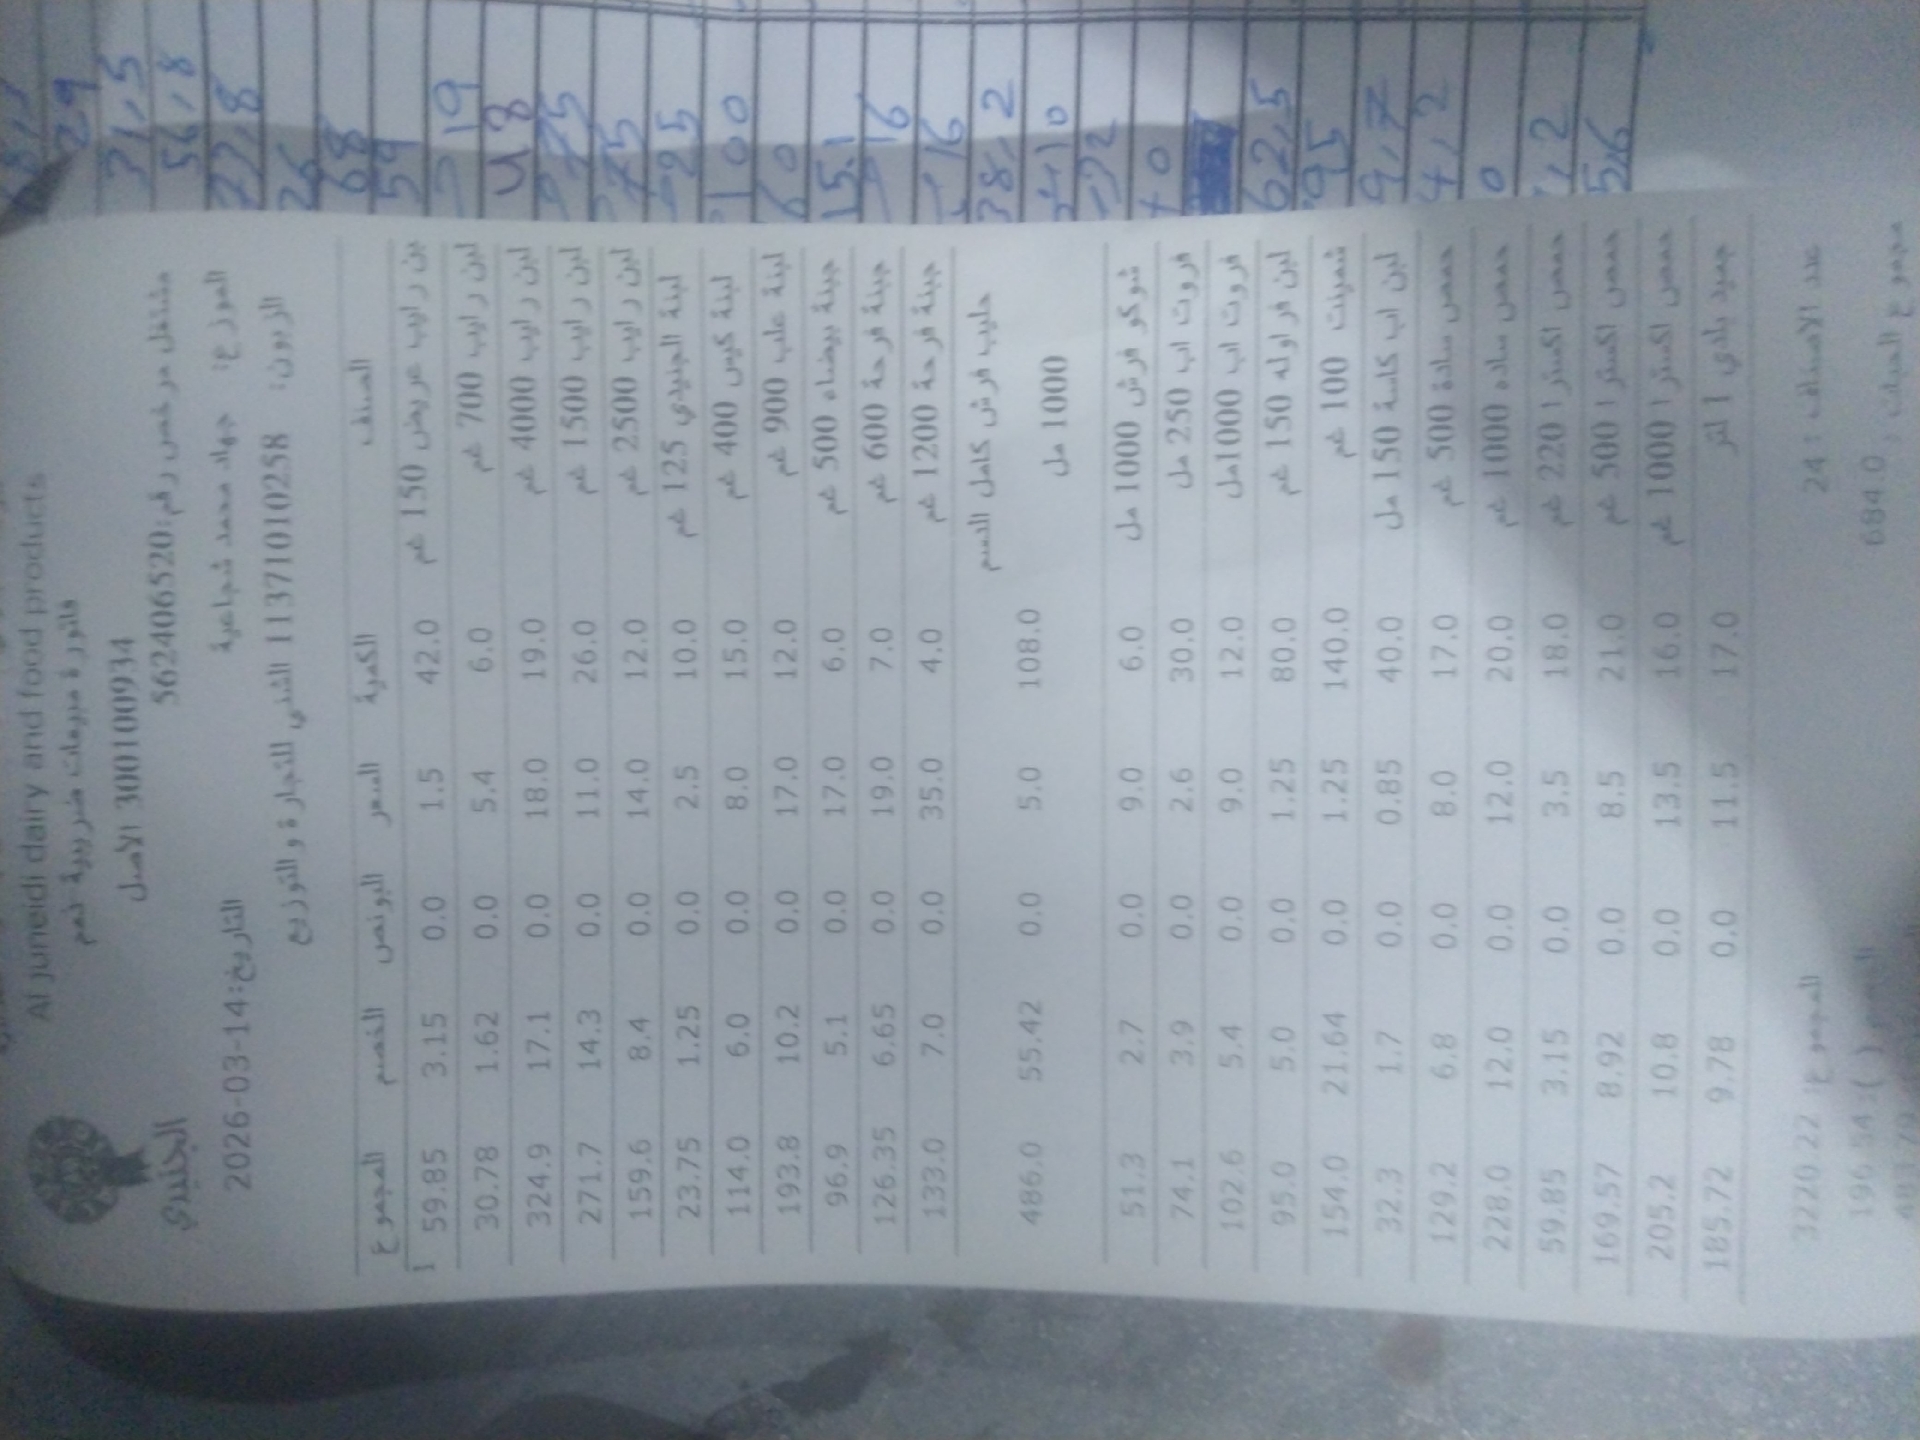 Al juneidi dairy and food products
الجنيدي
فاتورة مبيعات ضريبية نعم
300100934 الاصل
مشتغل مرخص رقم:562406520
التاريخ:2026-03-14
الموزع: جهاد محمد شجاعية
الزبون: 1137101010258 الشني للتجارة والتوزيع
الصنف الكمية السعر البونص الخصم المجموع
لبن رايب عريض 150 غم 42.0 1.5 0.0 3.15 59.85
لبن رايب 700 غم 6.0 5.4 0.0 1.62 30.78
لبن رايب 4000 غم 19.0 18.0 0.0 17.1 324.9
لبن رايب 1500 غم 26.0 11.0 0.0 14.3 271.7
لبن رايب 2500 غم 12.0 14.0 0.0 8.4 159.6
لبنة الجنيدي 125 غم 10.0 2.5 0.0 1.25 23.75
لبنة كيس 400 غم 15.0 8.0 0.0 6.0 114.0
لبنة علب 900 غم 12.0 17.0 0.0 10.2 193.8
جبنة بيضاء 500 غم 6.0 17.0 0.0 5.1 96.9
جبنة فرحة 600 غم 7.0 19.0 0.0 6.65 126.35
جبنة فرحة 1200 غم 4.0 35.0 0.0 7.0 133.0
حليب فرش كامل الدسم
1000 مل 108.0 5.0 0.0 55.42 486.0
شوكو فرش 1000 مل 6.0 9.0 0.0 2.7 51.3
فروت اب 250 مل 30.0 2.6 0.0 3.9 74.1
فروت اب 1000مل 12.0 9.0 0.0 5.4 102.6
لبن فراوله 150 غم 80.0 1.25 0.0 5.0 95.0
شمينت 100 غم 140.0 1.25 0.0 21.64 154.0
لبن اب كاسة 150 مل 40.0 0.85 0.0 1.7 32.3
حمص سادة 500 غم 17.0 8.0 0.0 6.8 129.2
حمص ساده 1000 غم 20.0 12.0 0.0 12.0 228.0
حمص اكسترا 220 غم 18.0 3.5 0.0 3.15 59.85
حمص اكسترا 500 غم 21.0 8.5 0.0 8.92 169.57
حمص اكسترا 1000 غم 16.0 13.5 0.0 10.8 205.2
جميد بلدي 1 لتر 17.0 11.5 0.0 9.78 185.72
عدد الاصناف : 24 المجموع: 3220.22
مجموع الحبات : 684.0 الخصم ( ): 196.54
29
31,5
56,8
77,8
26
68
59
19
48
25
75
25
100
60
15.1
16
16
38,2
410
72
40
62,5
95
9,7
4,2
0
1,2
56